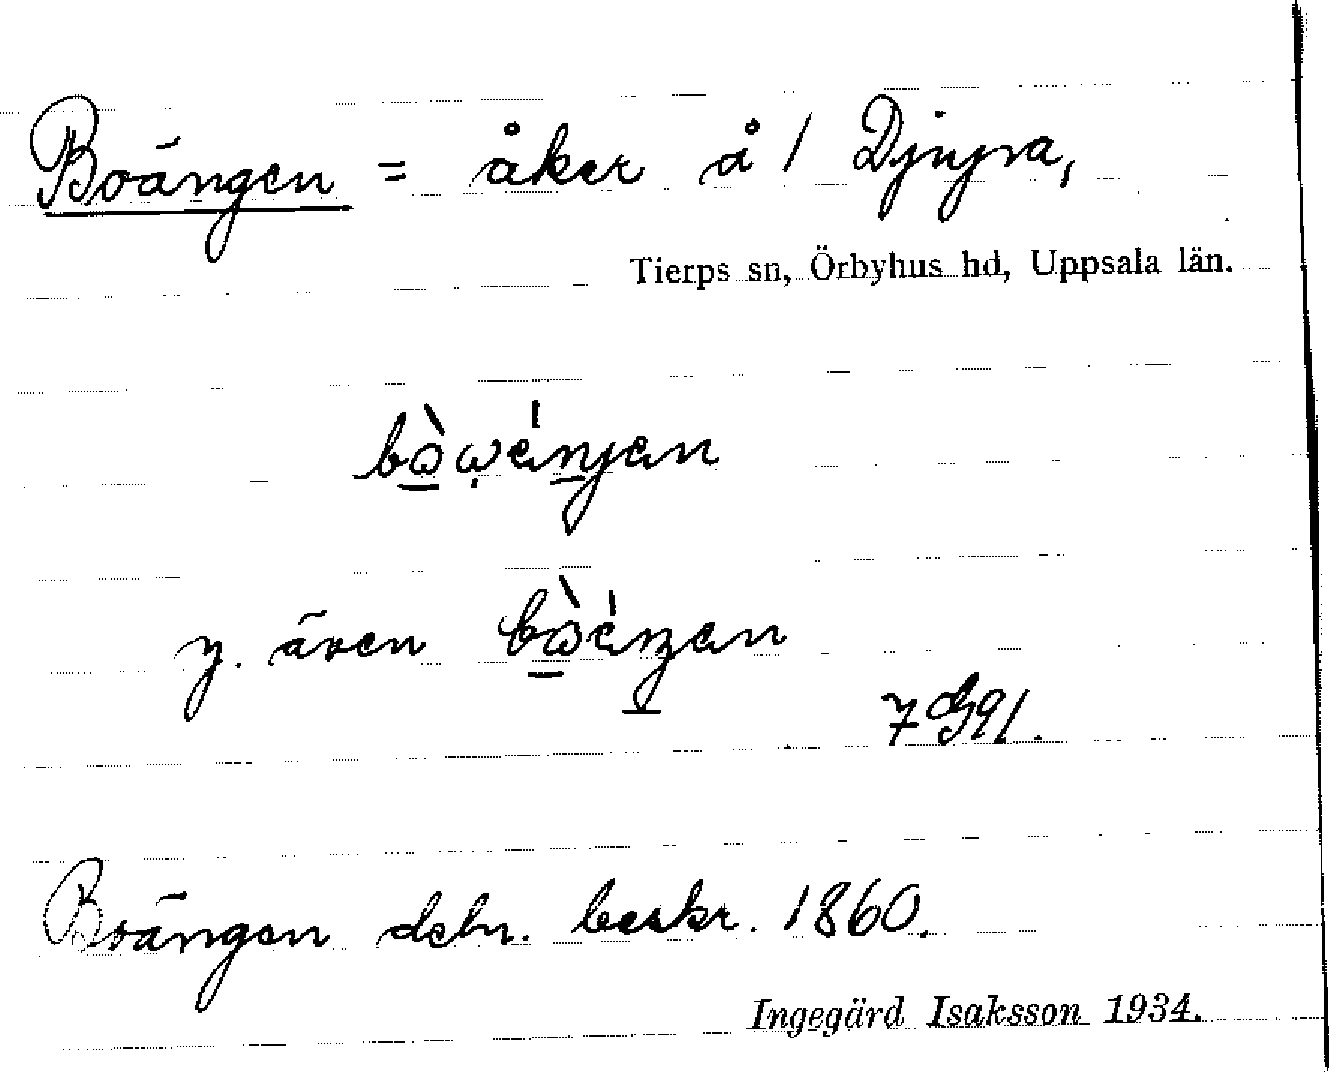 Boängen = åker å 1 Djupa,
Tierps sn, Örbyhus hd, Uppsala län.
y. även
7 G91.
Boängen debn. beskr. 1860.
Ingegärd Isaksson 1934.